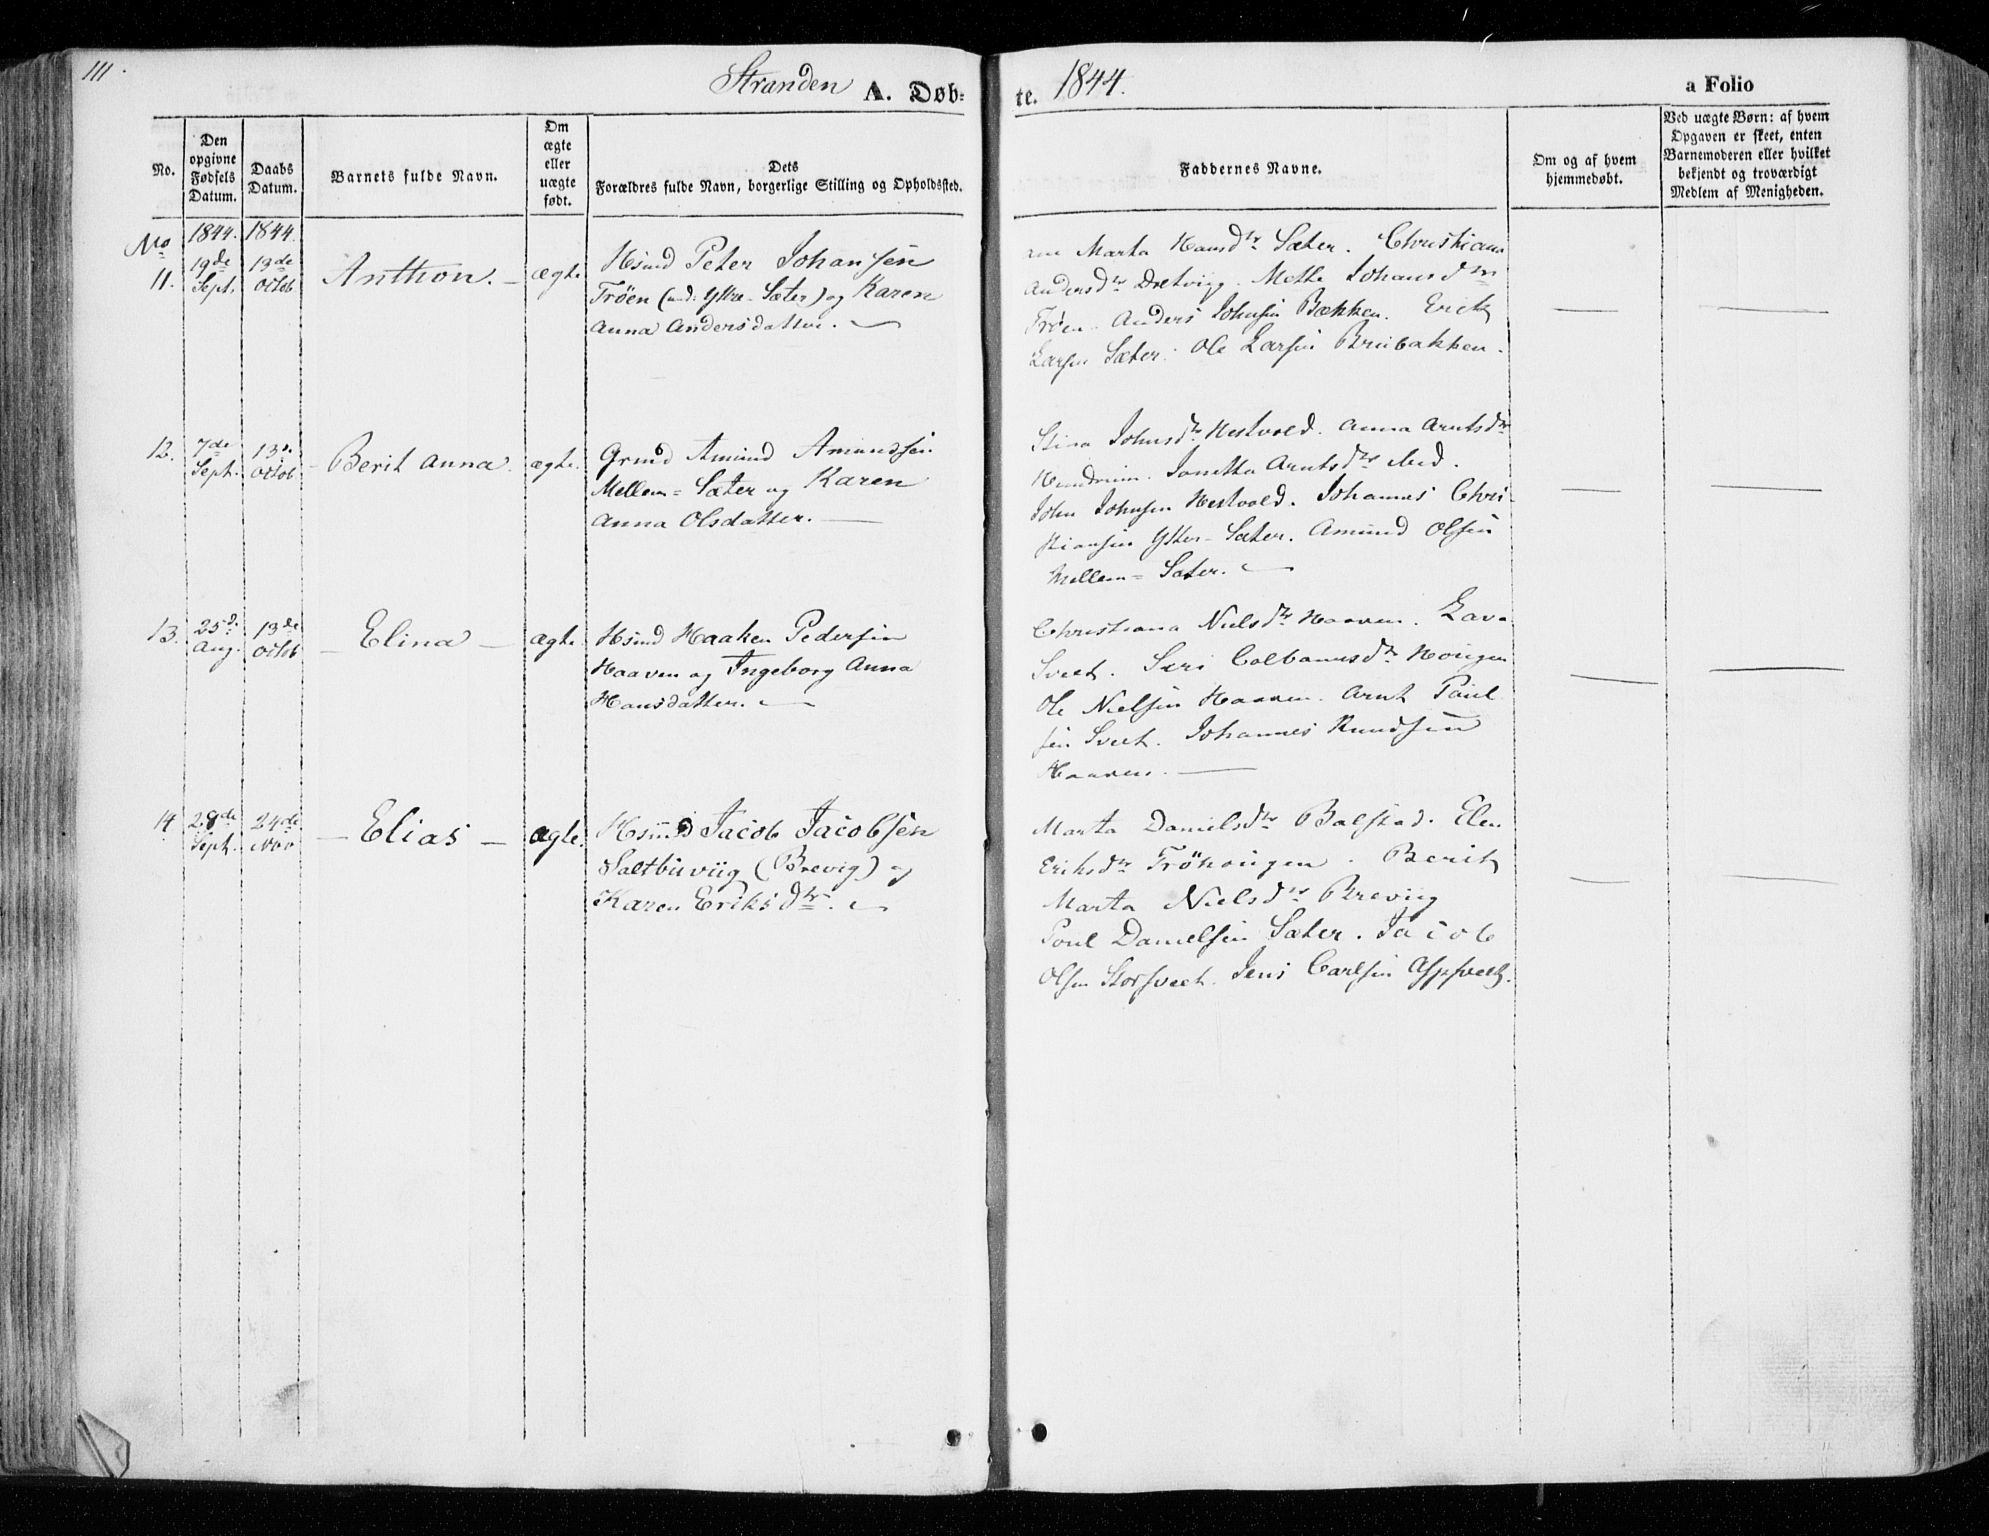 111.
Stranden A. Døb=
te. 1844.
a Folio
No.
Den opgivne Fødsels Datum.
Daabs Datum.
Barnets fulde Navn.
Om ægte eller uægte født.
Dets
Forældres fulde Navn, borgerlige Stilling og Opholdssted.
Faddernes Navne.
Om og af hvem hjemmedøbt.
Ved uægte Børn: af hvem Opgaven er skeet, enten Barnemoderen eller hvilket bekjendt og troværdigt Medlem af Menigheden.
No
1844. 1844.
11. 19de Sept. 13de Octob Anthon. — ægte
Hsmd Peter Johansen
Trøen (und: Yttre-Sæter) og Karen
Anna Andersdatter. —
Marta Hansdtr Sæter. Christiana
Andersdtr Dretvigg. Mette Johansdtr
Trøen. Anders Johnsen Bækken. Erick
Larsen Sæter. Ole Larsen Brubakken.
12. 7de Sept. 13de Octob - Berit Anna. ægte.
Grmd Amund Amundsen
Mellem=Sæter og Karen
Anna Olsdatter. —
Stina Johnsdtr Hestvold. Anna Arntsdtr
Jonetta Arntsdtr ibid.
John Johnsen Hestvold. Johannes Chri-
stiansen Ytter-Sæter. Amund Olsen
Mellem=Sæter. —
13. 25de Aug. 13de Octob — Elina — ægte
Hsmd Haaken Pedersen
Haaven og Ingeborg Anna
Hansdatter. —
Christiana Nielsdtr Haaven.
Sveet. Colbanusdtr Hougen
Ole Nielsen Haaven. Arnt Poul
sen Sveet. Johannes Knudsen
Haaven. —
14 28de Sept. 24de Nov — Elias — ægte.
Hsmd Jacob Jacobsen
Saltbuviig (Brevig) og
Karen Eriksdtr. —
Marta Danielsdtr Balstad. Elen
Eriksdtr Frøhougen. Berit
Marta Nielsdtr Breviig
Poul Danielsen Sæter. Jacob
Olsen Storsveet. Jens Carlsen Aspsveet.